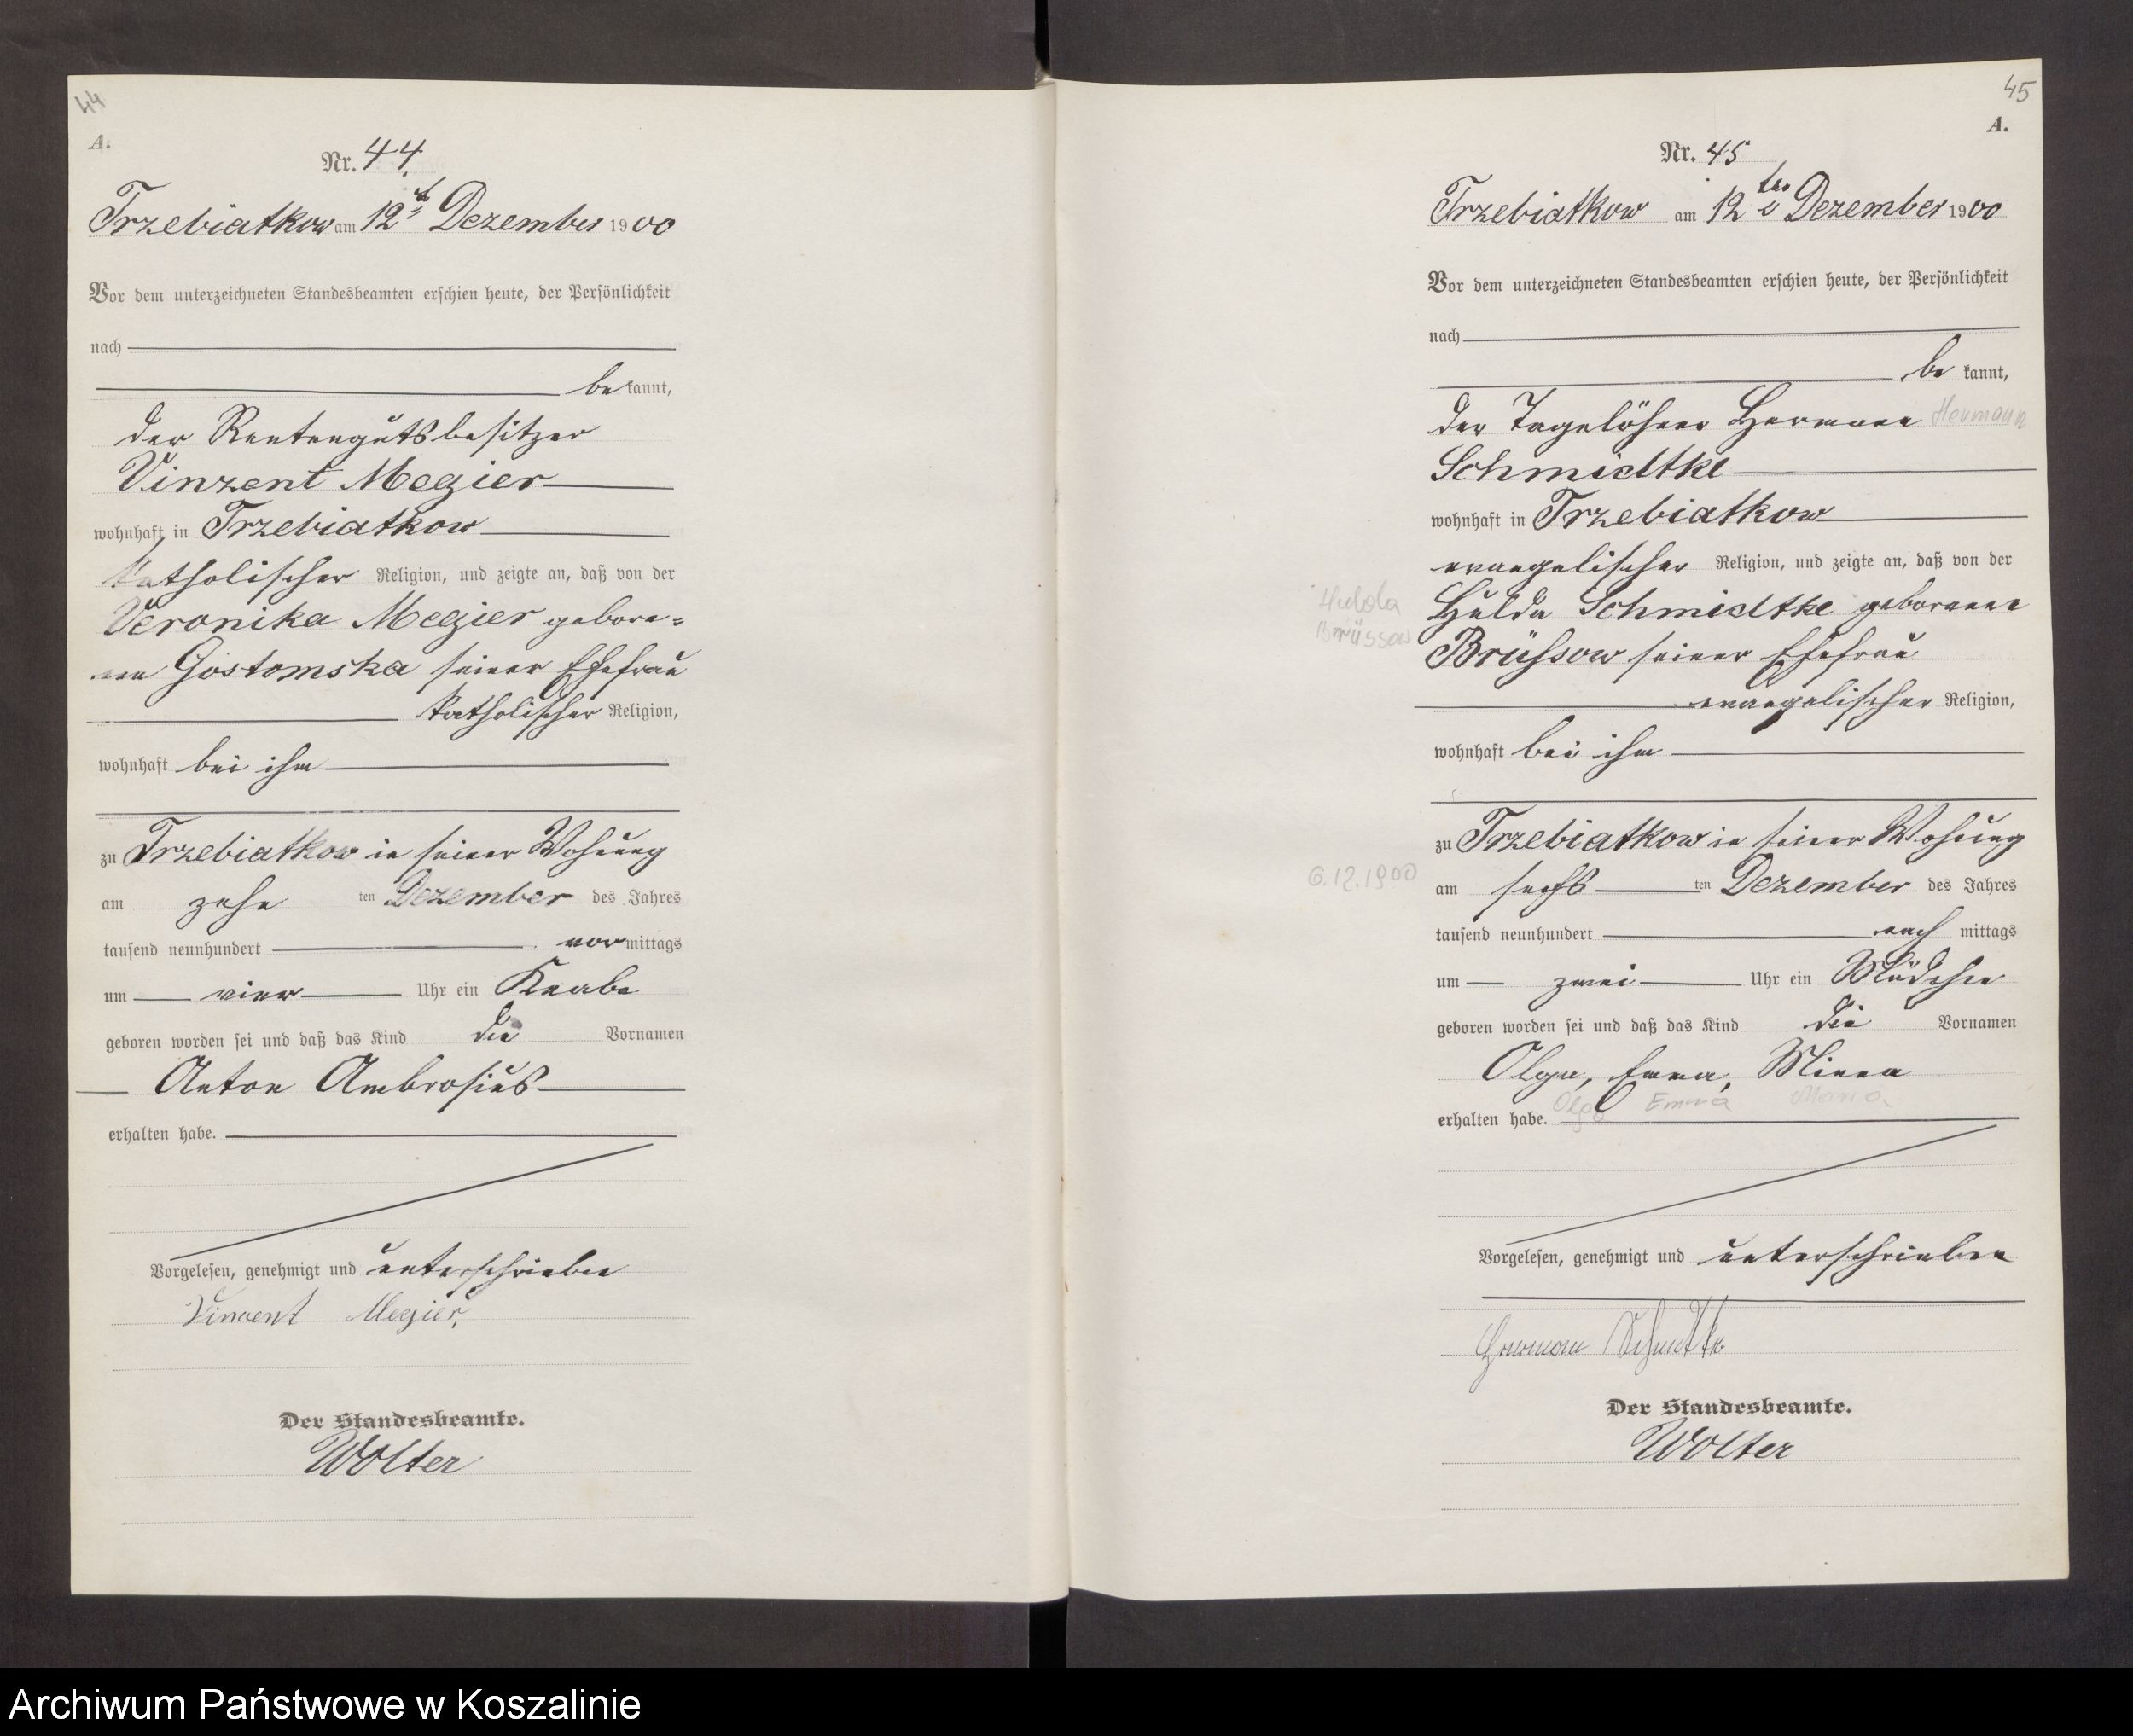 44
A.
Nr. 44.
Trzebiatkow am 12ten Dezember 1900
Vor dem unterzeichneten Standesbeamten erschien heute, der Persönlichkeit
nach
be kannt,
der Rentengutsbesitzer
Vinzent Megier
wohnhaft in Trzebiatkow
katholischer Religion, und zeigte an, daß von der
Veronika Megier gebore=
nen Gostomska seiner Ehefrau
katholischer Religion,
wohnhaft bei ihm
zu Trzebiatkow in seiner Wohnung
am zehn ten Dezember des Jahres
tausend neunhundert vor mittags
um vier Uhr ein Knabe
geboren worden sei und daß das Kind die Vornamen
Anton Ambrosius
erhalten habe.
Vorgelesen, genehmigt und unterschrieben
Vincent Megier,
Der Standesbeamte.
Wolter
45
A.
Nr. 45
Trzebiatkow am 12ten Dezember 1900
Vor dem unterzeichneten Standesbeamten erschien heute, der Persönlichkeit
nach
be kannt,
der Tagelöhner Hermann Hermann
Schmidtke
wohnhaft in Trzebiatkow
evangelischer Religion, und zeigte an, daß von der
Hulda Hulda Schmidtke geborenen
Brüssow Brüssow seiner Ehefrau
evangelischer Religion,
wohnhaft bei ihm
zu Trzebiatkow in seiner Wohnung
6.12.1900 am sechs ten Dezember des Jahres
tausend neunhundert nach mittags
um zwei Uhr ein Mädchen
geboren worden sei und daß das Kind die Vornamen
Olga, Emma, Minna
erhalten habe. Olga Emma Maria
Vorgelesen, genehmigt und unterschrieben
Herman Schmidtke
Der Standesbeamte.
Wolter
Archiwum Państwowe w Koszalinie